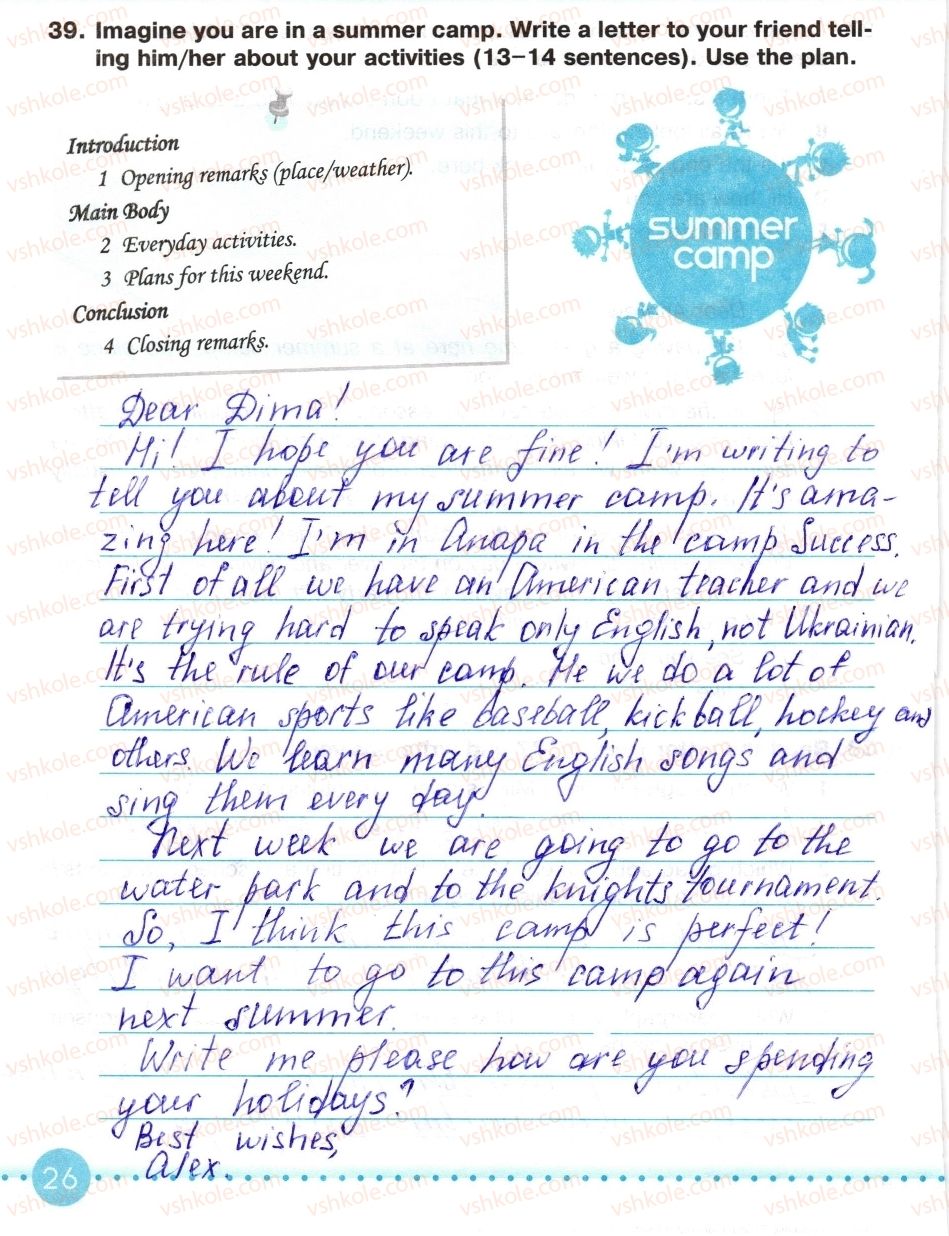 39. Imagine you are in a summer camp. Write a letter to your friend tell-
ing him/her about your activities (13–14 sentences). Use the plan.
Introduction
1 Opening remarks (place/weather).
Main Body
2 Everyday activities.
3 Plans for this weekend.
Conclusion
4 Closing remarks.
summer
camp
Dear Dima!
Hi! I hope you are fine! I'm writing to
tell you about my summer camp. It's ama-
zing here! I'm in Anapa in the camp Success.
First of all we have an American teacher and we
are trying hard to speak only English, not Ukrainian.
It's the rule of our camp. He we do a lot of
American sports like baseball, kickball, hockey and
others. We learn many English songs and
sing them every day.
Next week we are going to go to the
water park and to the knights tournament.
So, I think this camp is perfect!
I want to go to this camp again
next summer.
Write me please how are you spending
your holidays?
Best wishes,
Alex.
26
vshkole.com